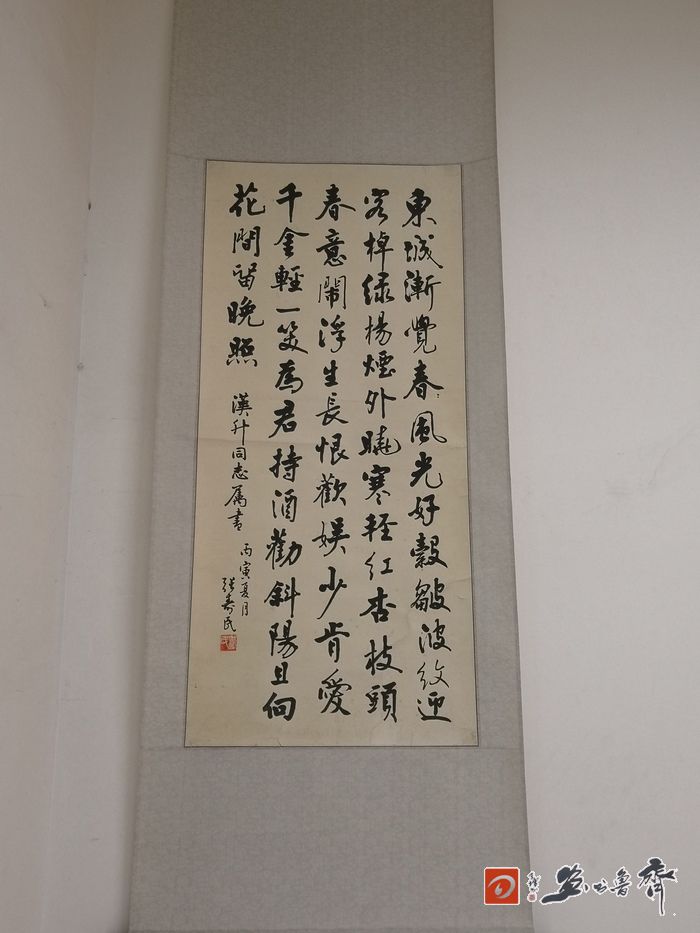 東城漸覺春風光好縠皺波紋迎
客棹绿楊煙外曉寒輕红杏枝頭
春意鬧浮生長恨歡娱少肯愛
千金輕一笑為君持酒勸斜陽且向
花間留晚照
漢升同志属書
丙寅夏月
张寿民
齐鲁